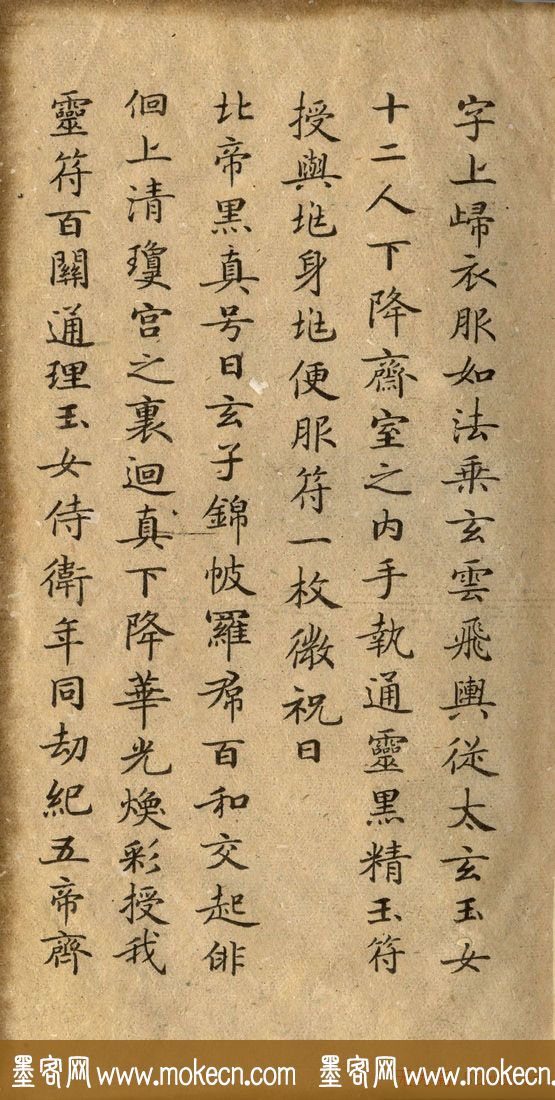 字上歸衣服如法乗玄雲飛輿従太玄玉女
十二人下降齋室之内手執通靈黒精玉符
授與兆身兆便服符一枚微祝曰
北帝黒真号曰玄子錦帔羅帬百和交起俳
佪上清瓊宫之裏迴真下降華光煥彩授我
靈符百關通理玉女侍衛年同劫紀五帝齊
墨客网 www.mokecn.com 墨客网 www.mokecn.com